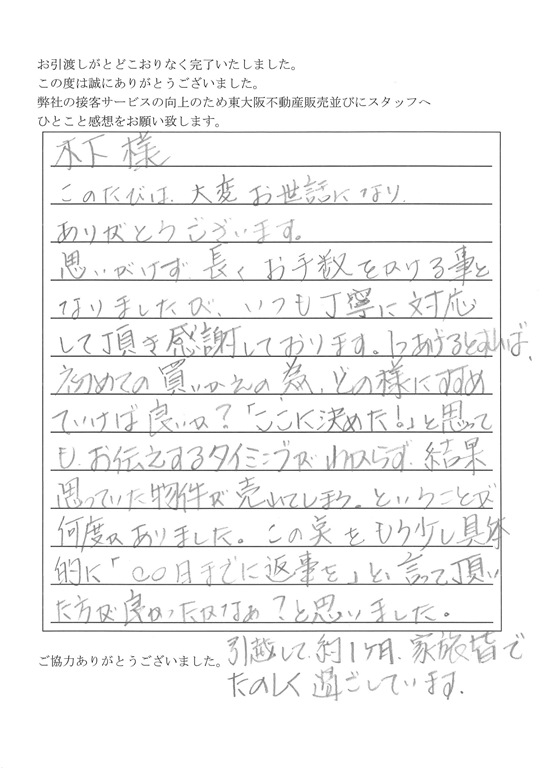 お引渡しがとどこおりなく完了いたしました。
この度は誠にありがとうございました。
弊社の接客サービスの向上のため東大阪不動産販売並びにスタッフへ
ひとこと感想をお願い致します。
木下 様
このたびは、大変 お世話になり、
ありがとうございます。
思いがけず、長く お手数をかける事と
なりましたが、いつも丁寧に対応
して頂き感謝しております。1つあげるとすれば、
初めての買いかえの為、どの様にすすめ
ていけば良いか?「ここに決めた!」と思って
も、お伝えするタイミングがわからず、結果
思っていた物件が売れてしまう。ということが
何度かありました。この実をもう少し具体
的に「○○日までに返事を」と、言って頂い
た方が良かったかなぁ?と思いました。
ご協力ありがとうございました。
引越して、約1ヶ月、家族皆で
たのしく過ごしています。